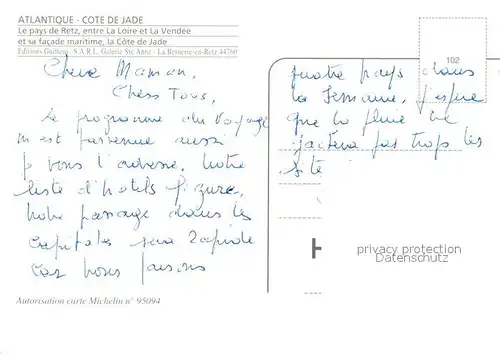 ATLANTIQUE - COTE DE JADE
Le pays de Retz, entre La Loire et La Vendée
et sa façade maritime, la Côte de Jade
Editions Guitteny S.A.R.L. Galerie Ste Anne - La Bernerie-en-Retz 44760
102
Chere Maman,
Chers Tous,
Le programme du voyage
m'est parvenue aussi
je vous l'adresse. Notre
liste d'hotels figure,
notre passage dans les
Capitales sera rapide
car nous faisons
quatre pays dans
la Semaine, j'espere
que la pluie ne
pas trop les
privacy protection
Datenschutz
Autorisation carte Michelin n° 95094